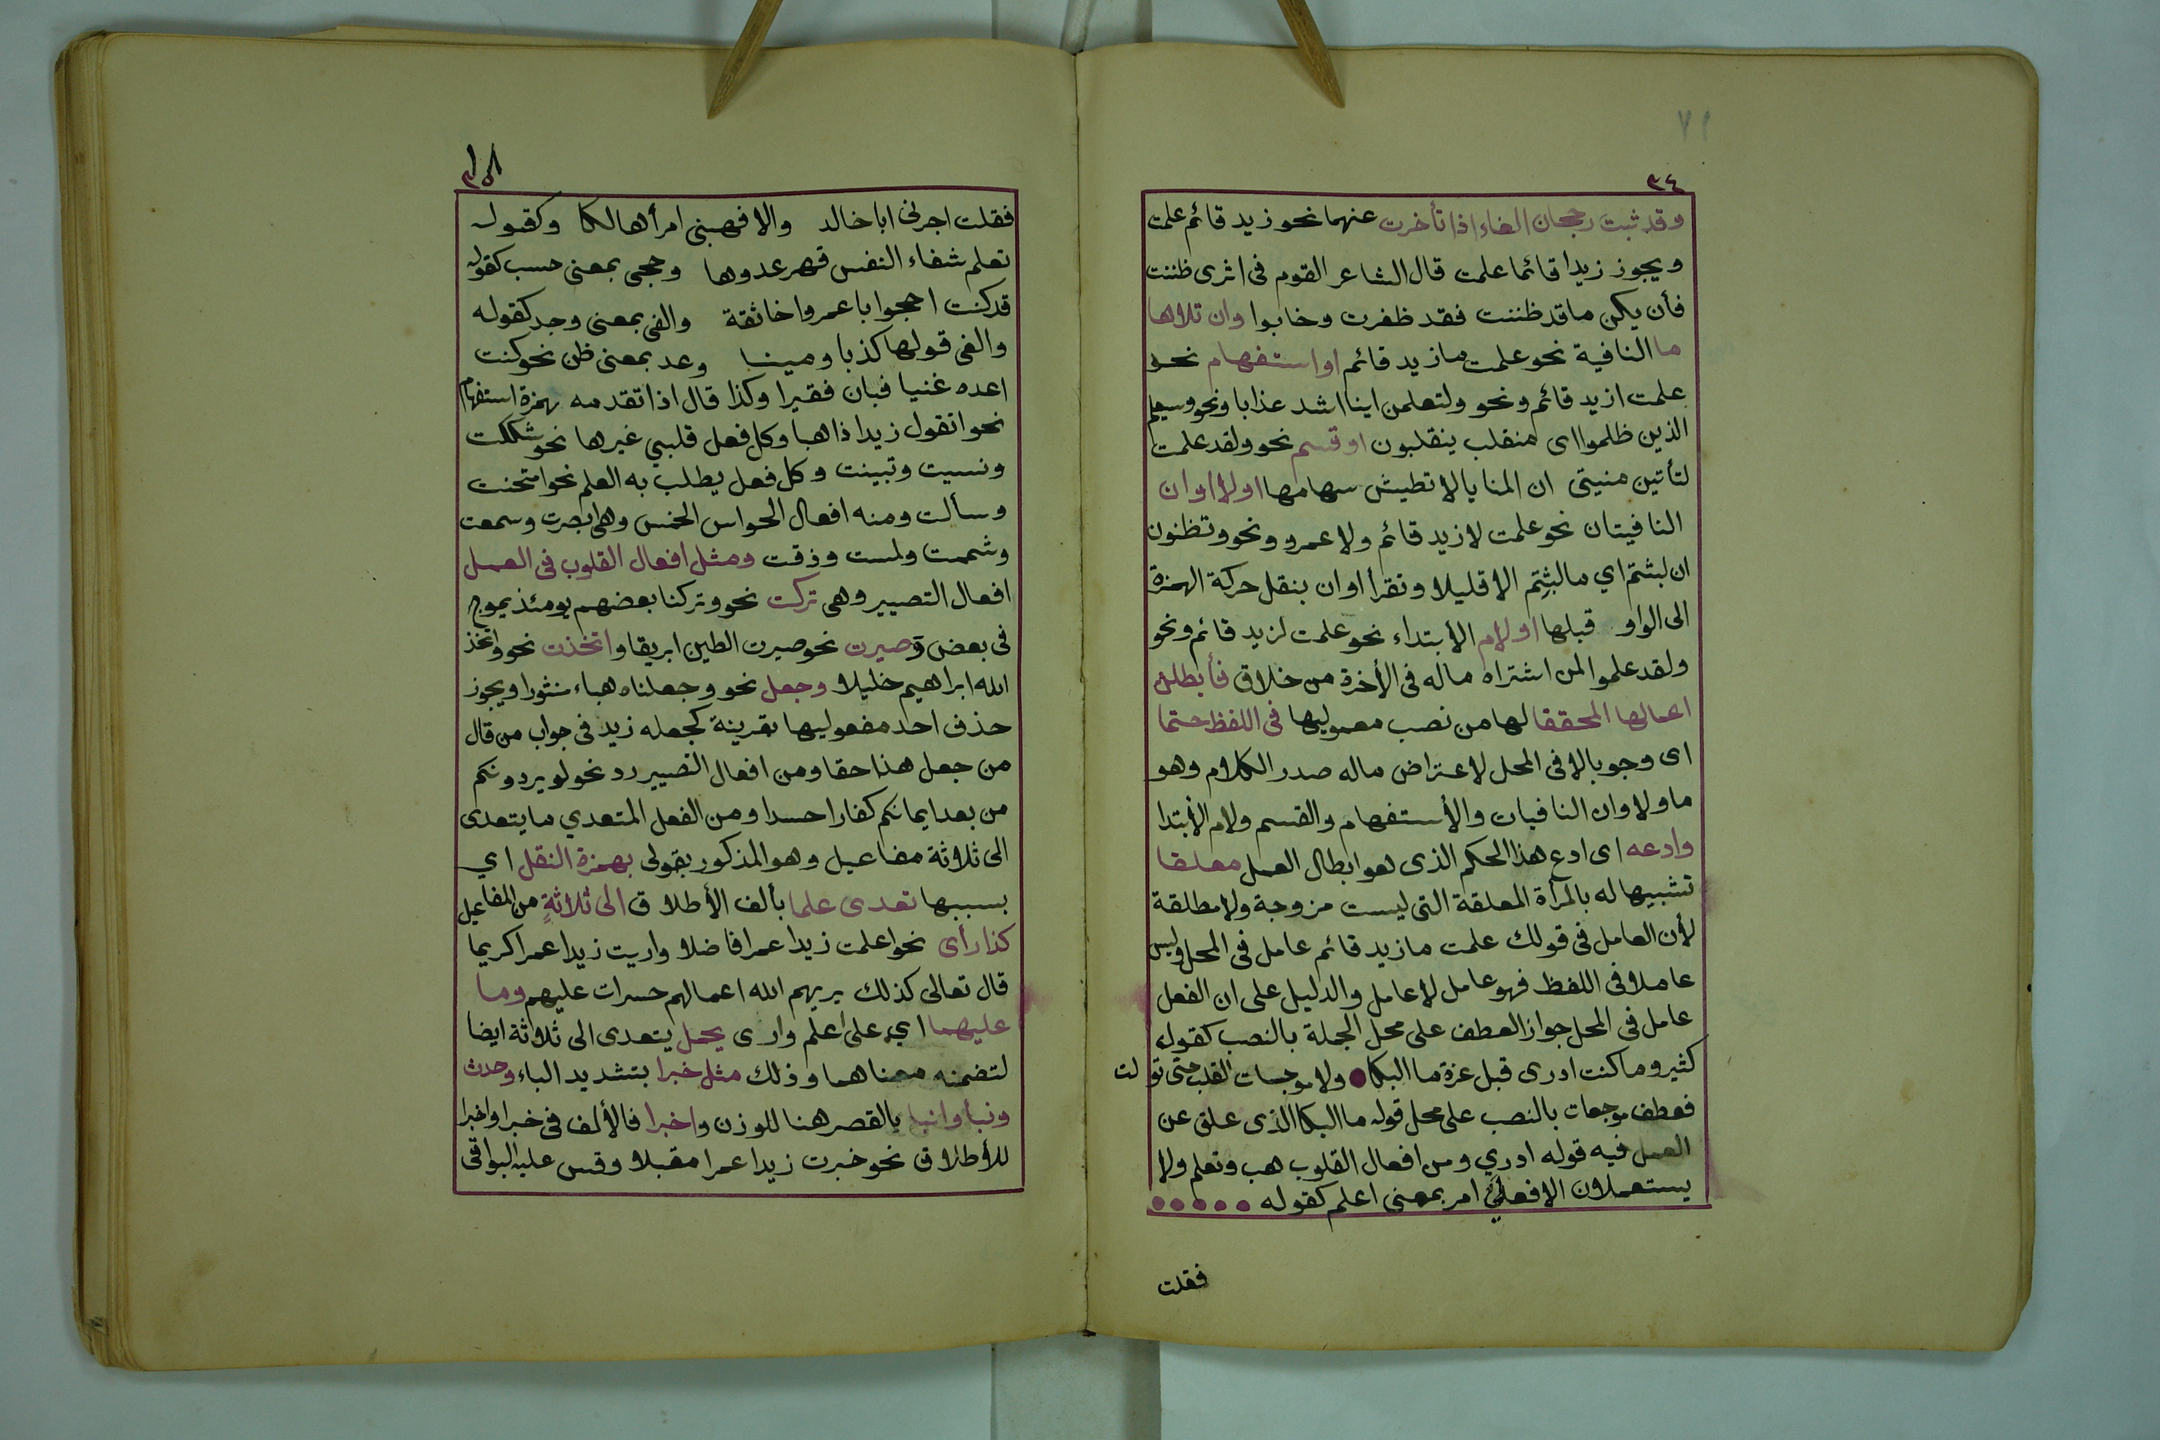 ٧١
٣٤
وقد ثبت رجحان الغاء اذا تأخرت عنهما نحو زيد قائم علمت
ويجوز زيدا قائما علمت قال الشاعر القوم فى اثرى ظننت
فأن يكن ما قد ظننت فقد ظفرت وخابوا وان تلاها
ما النافية نحو علمت ما زيد قائم او استفهام نحو
علمت ازيد قائم ونحو ولتعلمن اينا اشد عذابا ونحو وسيعلم
الذين ظلموا اى منقلب ينقلبون او قسم نحو ولقد علمت
لتأتين منيتى ان المنايا لا تطيش سهامها او لا او ان
النافيتان نحو علمت لا زيد قائم ولا عمرو ونحو وتظنون
ان لبثتم اي ما لبثتم الا قليلا وتقرأ او ان بنقل حركة الهمزة
الى الواو قبلها او لام الأبتداء نحو علمت لزيد قائم ونحو
ولقد علموا لمن اشتراه ماله فى الأخرة من خلاق فأبطلن
اعمالها المحققا لها من نصب معموليها فى اللفظ حتما
اى وجوبا لا فى المحل لاعتراض ماله صدر الكلام وهو
ما ولا وان النافيات والأستفهام والقسم ولام الأبتدا
وادعه اى ادع هذا الحكم الذى هو ابطال العمل معلقا
تشبيها له بالمرآة المعلقة التى ليست مزوجة ولا مطلقة
لأن العامل فى قولك علمت ما زيد قائم عامل فى المحل وليس
عاملا فى اللفظ فهو عامل لا عامل والدليل على ان الفعل
عامل فى المحل جواز العطف على محل الجملة بالنصب كقوله
كثير وما كنت ادرى قبل عزة ما البكا ولا موجعات القلب حتى تولت
فعطف موجعات بالنصب على محل قوله ما البكا الذى علق عن
العمل فيه قوله ادري ومن افعال القلوب هب وتعلم ولا
يستعملان الا فعلي امر بمعنى اعلم كقوله
فقلت
فقلت اجرنى ابا خالد والا فهبنى امرأ هالكا وكقوله
تعلم شفاء النفس قهر عدوها وحجى بمعنى حسب كقوله
قد كنت احجوا ابا عمرو اخا ثقة والفى بمعنى وجد كقوله
والفى قولها كذبا ومينا وعد بمعنى ظن نحو كنت
اعده غنيا فبان فقيرا وكذا قال اذا تقدمه بهمزة استفهام
نحو اتقول زيدا ذاهبا وكل فعل قلبي غيرها نحو شككت
ونسيت وتبينت وكل فعل يطلب به العلم نحو امتحنت
وسألت ومنه افعال الحواس الخمس وهى ابصرت وسمعت
وشممت ولمست وذقت ومثل افعال القلوب فى العمل
افعال التصيير وهى تركت نحو وتركنا بعضهم يومئذ يموج
فى بعض وصيرت نحو صيرت الطين ابريقا واتخذت نحو واتخذ
الله ابراهيم خليلا وجعل نحو وجعلناه هباء منثورا ويجوز
حذف احد مفعوليها بقرينة كجعله زيد فى جواب من قال
من جعل هذا حقا ومن افعال التصيير رد نحو لو يردونكم
من بعد ايمانكم كفارا حسدا ومن الفعل المتعدي ما يتعدى
الى ثلاثة مفاعيل وهو المذكور بقولى بهمزة النقل اي
بسببها تعدى علما بألف الأطلاق الى ثلاثة من المفاعيل
كذا رأى نحو اعلمت زيدا عمرا فاضلا واريت زيدا عمرا كريما
قال تعالى كذلك يريهم الله اعمالهم حسرات عليهم وما
عليهما اي على اعلم وارى يحمل يتعدى الى ثلاثة ايضا
لتضمنه معناهما وذلك مثل خبرا بتشديد الباء وحدث
ونبأ وانبا بالقصر هنا للوزن واخبرا فالألف فى خبرا واخبرا
للأطلاق نحو خبرت زيدا عمرا مقبلا وقس عليه البواقى